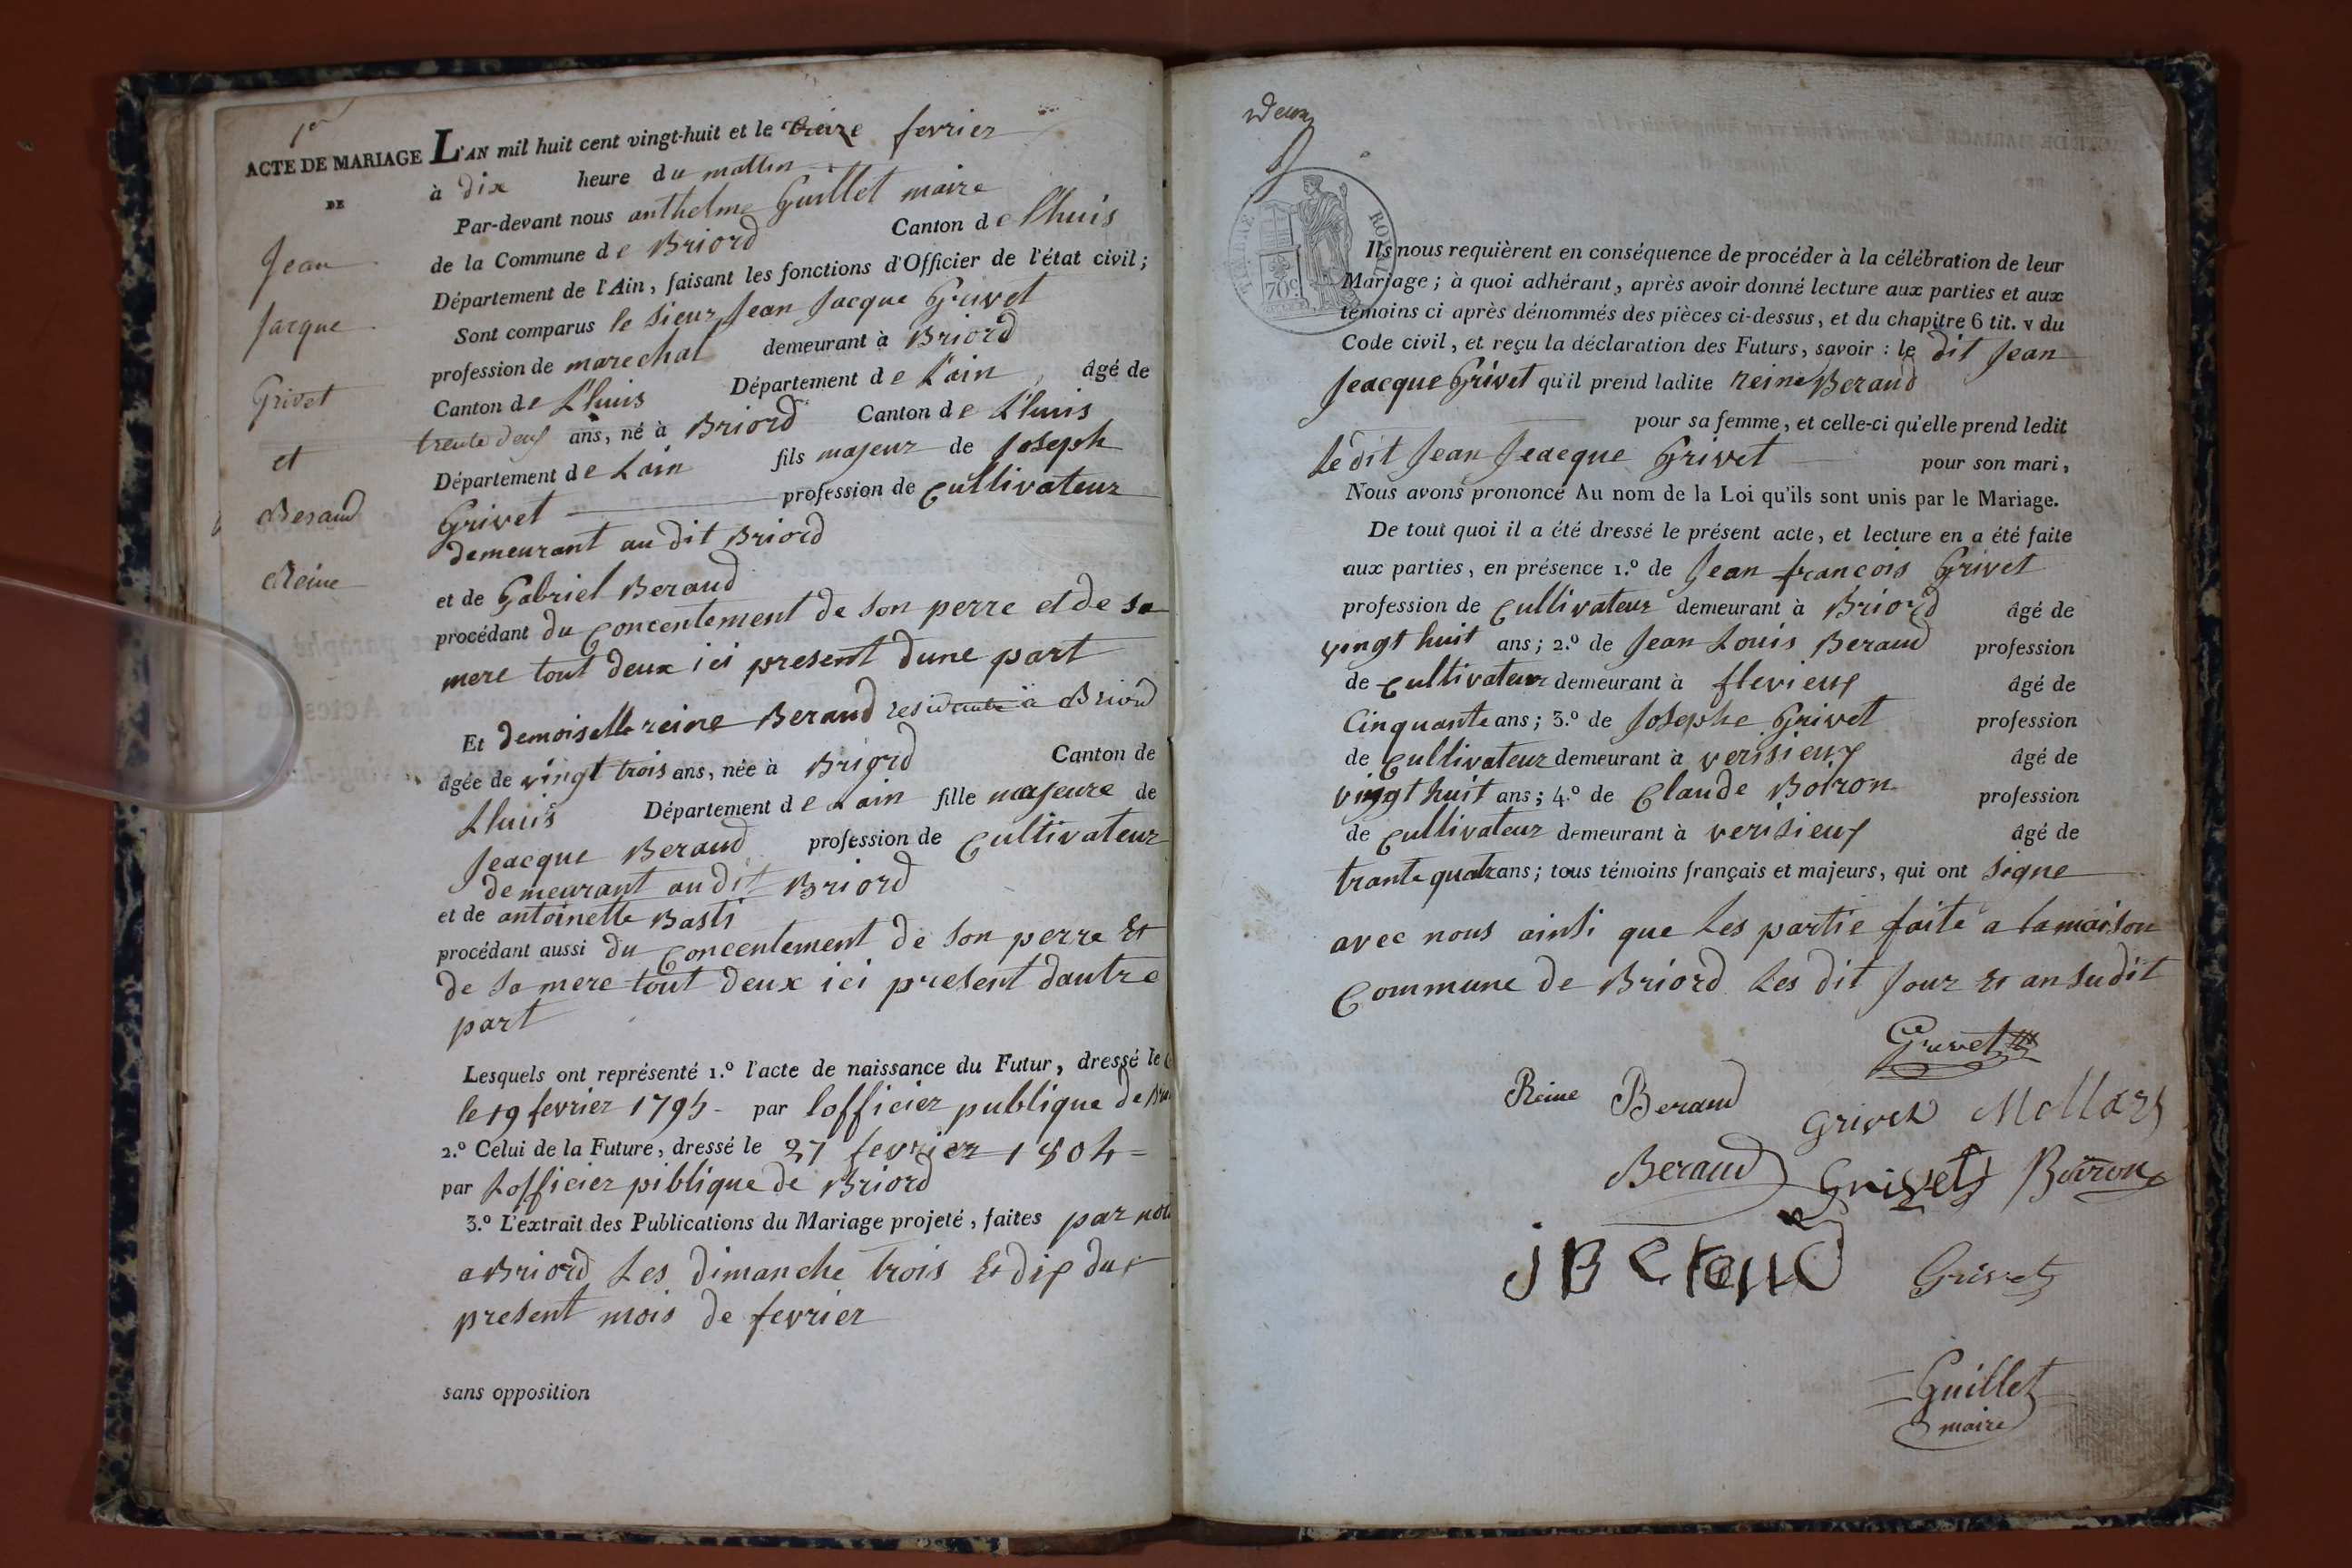 1er
ACTE DE MARIAGE
DE
Jean
Jacque
Grivet
et
Beraud
Reine
L'AN mil huit cent vingt-huit et le treize fevrier
à dix heure du mattin
Par-devant nous anthelme Guillet maire
de la Commune de Briord Canton de lhuis
Département de l'Ain, faisant les fonctions d'Officier de l'état civil;
Sont comparus le sieur Jean Jacque Grivet
profession de marechal demeurant à Briord
Canton de Lhuis Département de Lain, âgé de
trente deux ans, né à Briord Canton de Lhuis
Département de Lain fils majeur de Joseph
Grivet profession de Cultivateur
demeurant au dit Briord
et de Gabriel Beraud
procédant du Concentement de son perre et de sa
mere tout deux ici present dune part
Et demoiselle reine Beraud residante à Briord
âgée de vingt trois ans, née à Briord Canton de
Lhuis Département de Lain fille majeure de
Jeacque Beraud profession de Cultivateur
demeurant au dit Briord
et de antoinette Basti
procédant aussi du Concentement de son perre Et
de sa mere tout deux ici present dautre
part
Lesquels ont représenté 1.º l'acte de naissance du Futur, dressé le
le 19 fevrier 1795 - par lofficier publique de
2.º Celui de la Future, dressé le 27 fevrier 1804 =
par Lofficier piblique de Briord
3.º L'extrait des Publications du Mariage projeté, faites par
a Briord Les dimanche trois Et dix du
present mois de fevrier
sans opposition
Deux
ROYAL
70c.
Ils nous requièrent en conséquence de procéder à la célébration de leur
Mariage; à quoi adhérant, après avoir donné lecture aux parties et aux
témoins ci après dénommés des pièces ci-dessus, et du chapitre 6 tit. v du
Code civil, et reçu la déclaration des Futurs, savoir: le dit Jean
Jeacque Grivet qu'il prend ladite reine Beraud
pour sa femme, et celle-ci qu'elle prend ledit
Le dit Jean Jeacque Grivet pour son mari,
Nous avons prononcé Au nom de la Loi qu'ils sont unis par le Mariage.
De tout quoi il a été dressé le présent acte, et lecture en a été faite
aux parties, en présence 1.º de Jean francois Grivet
profession de Cultivateur demeurant à Briord âgé de
vingt huit ans; 2.º de Jean Louis Beraud profession
de Cultivateur demeurant à flevieux âgé de
Cinquante ans; 3.º de Josephe Grivet profession
de Cultivateur demeurant à verisieux âgé de
vingt huit ans; 4.º de Claude Boiron profession
de Cultivateur demeurant à verisieux âgé de
trante quatr ans; tous témoins français et majeurs, qui ont signe
avec nous ainsi que Les partie faite a la maison
Commune de Briord Les dit Jour Et an sudit
Grivet
Reine Beraud Grivet Mollard
Beraud Grivet Boiron
J Beraud Grivet
Guillet
maire